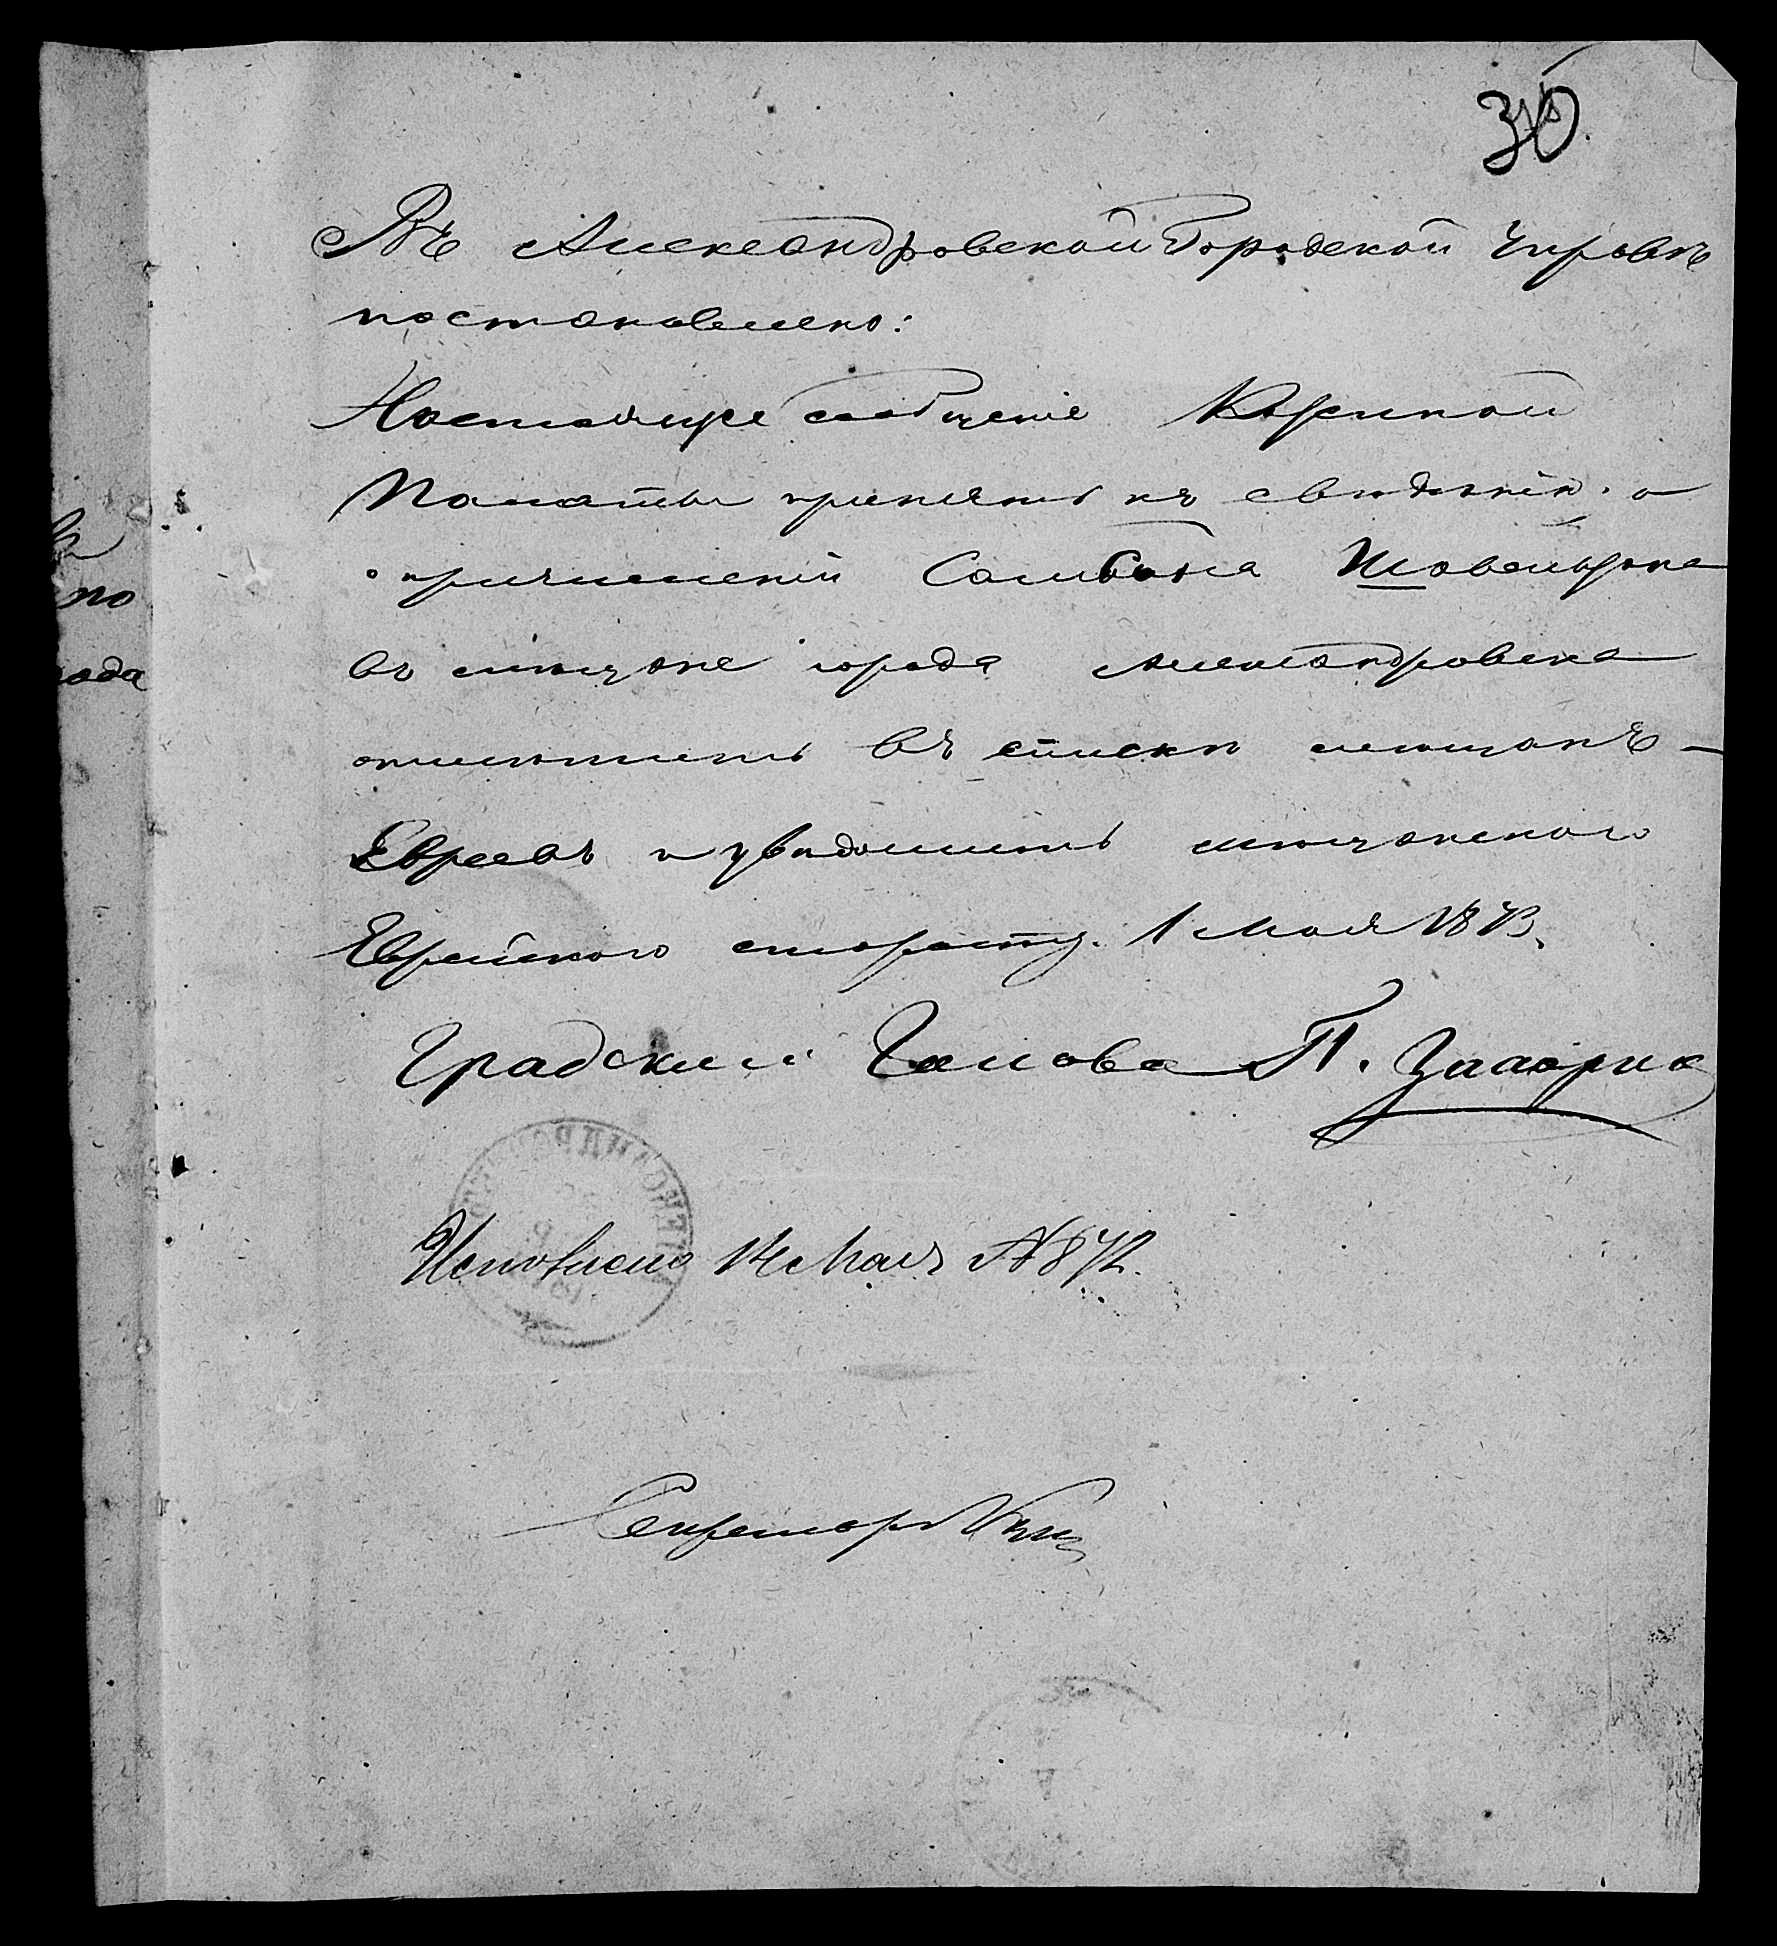 30
Въ Александровской Городской Управѣ
постановлено:
Настоящее сообщеніе Казенной
Палаты принять къ свѣдѣнію, а
о причисленіи Самсона
въ мѣщане города Александровска
отмѣтить въ списки мѣщанъ -
Евреевъ и увѣдомить мѣщанского
Еврейского старосту. 1 Мая 1873.
Градский Голова П.
Исполнено 14 Мая № 872.
Секретарь
по
года